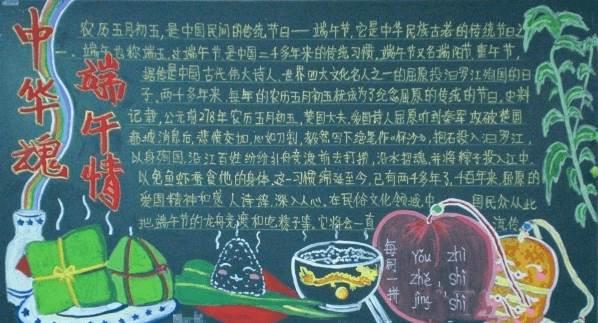 中华魂
端午情
农历五月初五,是中国民间的传统节日——端午节,它是中华民族古老的传统节日之
一。端午也称端五,端午节是中国二千多年来的传统习惯,端午节又名端阳节重午节,
据传是中国古代伟大诗人、世界四大文化名人之一的屈原投汨罗江殉国的日
子,两千多年来,每年的农历五月初五就成为了纪念屈原的传统的节日。史料
记载,公元前278年农历五月初五,楚国大夫、爱国诗人屈原听到秦军攻破楚国
都城消息后,悲愤交加,心如刀割,毅然写下绝笔作《怀沙》,抱石投入汨罗江,
以身殉国。沿江百姓纷纷引舟竞渡前去打捞,沿水招魂,并将粽子投入江中,
以免鱼虾蚕食他的身体。这一习惯绵延至今,已有两千多年了,千百年来,屈原的
爱国精神和感人诗篇,深入人心。在民俗文化领域,中 国民众从此
把端午节的龙舟竞渡和吃粽子等,它将会一直 流传
每周一拼
yǒu zhì
zhě, shì
jìng shì